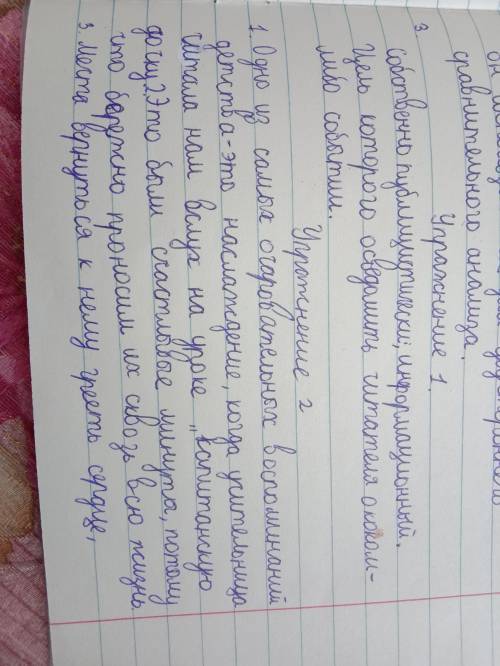 сравнительного анализа.
Упражнение 1.
3.
Собственно публицистический, информационный.
Цель которого осведомить читателя о каком-
либо событии.
Упражнение 2
1. Одно из самых очаровательных воспоминаний
детства-это наслаждение, когда учительница
читала нам вслух на уроке „Капитанскую
дочку". 2. Это были счастливые минуты, потому
что бережно проносим их сквозь всю жизнь
3. Места вернуться к нему греть сердце,